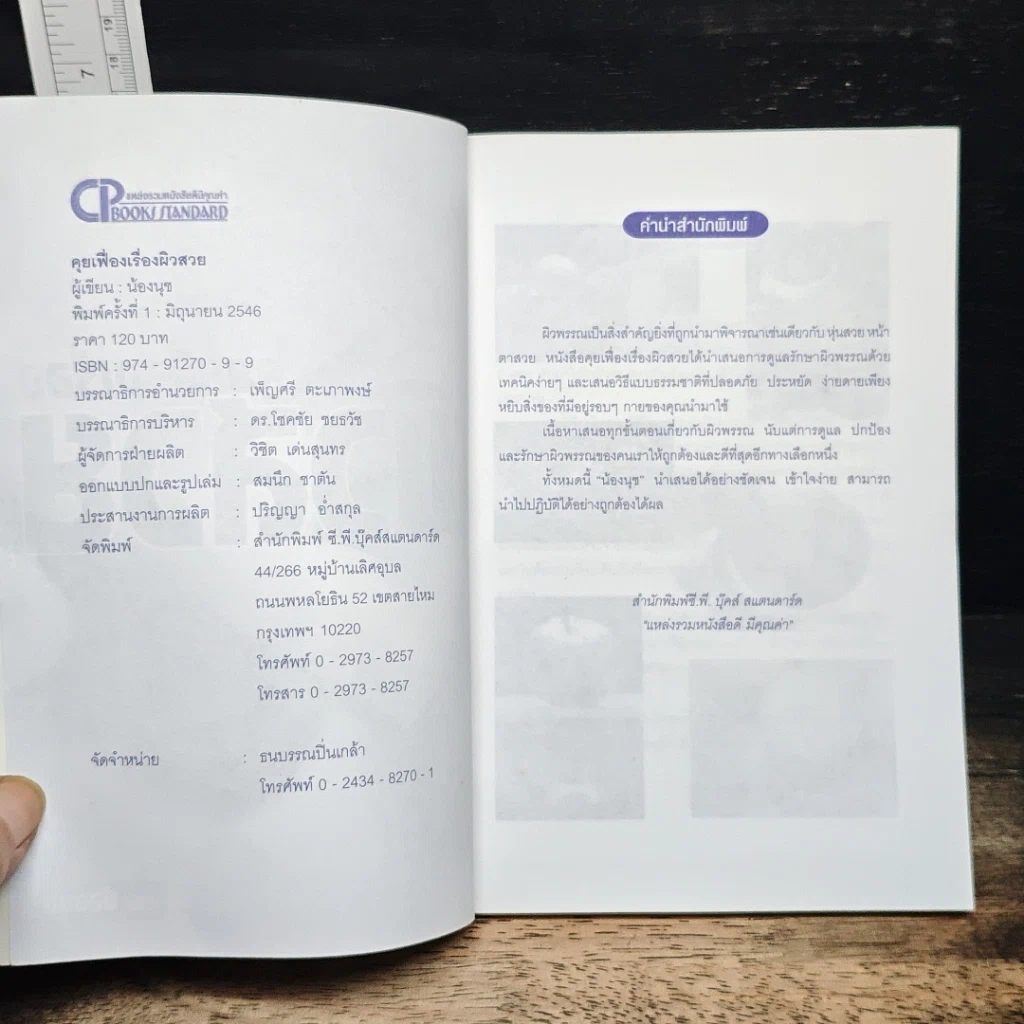 19
18
7
CP แหล่งรวมหนังสือดีมีคุณค่า
BOOKS STANDARD
คุยเฟื่องเรื่องผิวสวย
ผู้เขียน : น้องนุช
พิมพ์ครั้งที่ 1 : มิถุนายน 2546
ราคา 120 บาท
ISBN : 974 - 91270 - 9 - 9
บรรณาธิการอำนวยการ : เพ็ญศรี ตะเภาพงษ์
บรรณาธิการบริหาร : ดร.โชคชัย ชยธวัช
ผู้จัดการฝ่ายผลิต : วิชิต เด่นสุนทร
ออกแบบปกและรูปเล่ม : สมนึก ชาตัน
ประสานงานการผลิต : ปริญญา อ่ำสกุล
จัดพิมพ์ : สำนักพิมพ์ ซี.พี.บุ๊คส์สแตนดาร์ด
44/266 หมู่บ้านเลิศอุบล
ถนนพหลโยธิน 52 เขตสายไหม
กรุงเทพฯ 10220
โทรศัพท์ 0 - 2973 - 8257
โทรสาร 0 - 2973 - 8257
จัดจำหน่าย : ธนบรรณปิ่นเกล้า
โทรศัพท์ 0 - 2434 - 8270 - 1
คำนำสำนักพิมพ์
ผิวพรรณเป็นสิ่งสำคัญยิ่งที่ถูกนำมาพิจารณาเช่นเดียวกับ หุ่นสวย หน้า
ตาสวย หนังสือคุยเฟื่องเรื่องผิวสวยได้นำเสนอการดูแลรักษาผิวพรรณด้วย
เทคนิคง่ายๆ และเสนอวิธีแบบธรรมชาติที่ปลอดภัย ประหยัด ง่ายดายเพียง
หยิบสิ่งของที่มีอยู่รอบๆ กายของคุณนำมาใช้
เนื้อหาเสนอทุกขั้นตอนเกี่ยวกับผิวพรรณ นับแต่การดูแล ปกป้อง
และรักษาผิวพรรณของคนเราให้ถูกต้องและดีที่สุดอีกทางเลือกหนึ่ง
ทั้งหมดนี้ "น้องนุช" นำเสนอได้อย่างชัดเจน เข้าใจง่าย สามารถ
นำไปปฏิบัติได้อย่างถูกต้องได้ผล
สำนักพิมพ์ซี.พี. บุ๊คส์ สแตนดาร์ด
"แหล่งรวมหนังสือดี มีคุณค่า"